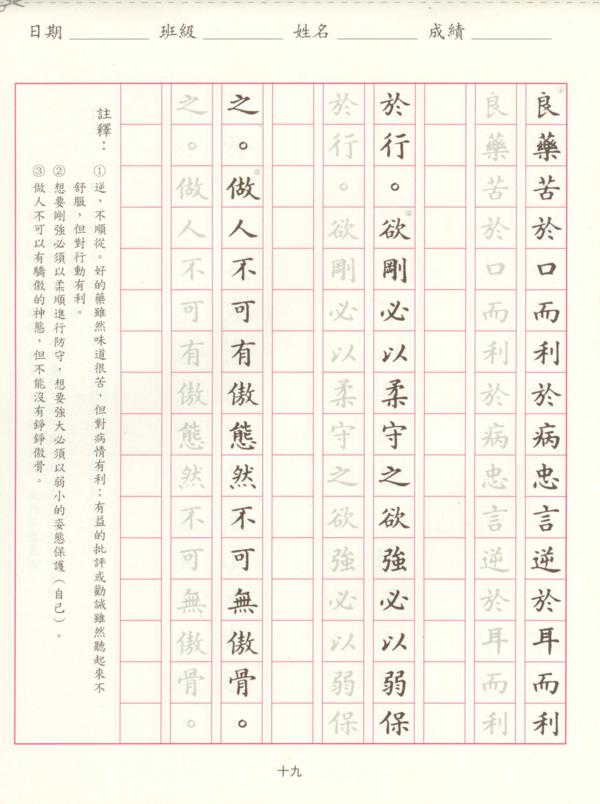 日期 班級 姓名 成績
①良藥苦於口而利於病忠言逆於耳而利
良藥苦於口而利於病忠言逆於耳而利
於行。②欲剛必以柔守之欲強必以弱保
於行。欲剛必以柔守之欲強必以弱保
之。③做人不可有傲態然不可無傲骨。
之。做人不可有傲態然不可無傲骨。
註釋：①逆，不順從。好的藥雖然味道很苦，但對病情有利；有益的批評或勸誡雖然聽起來不
舒服，但對行動有利。
②想要剛強必須以柔順進行防守，想要強大必須以弱小的姿態保護（自己）。
③做人不可以有驕傲的神態，但不能沒有錚錚傲骨。
十九